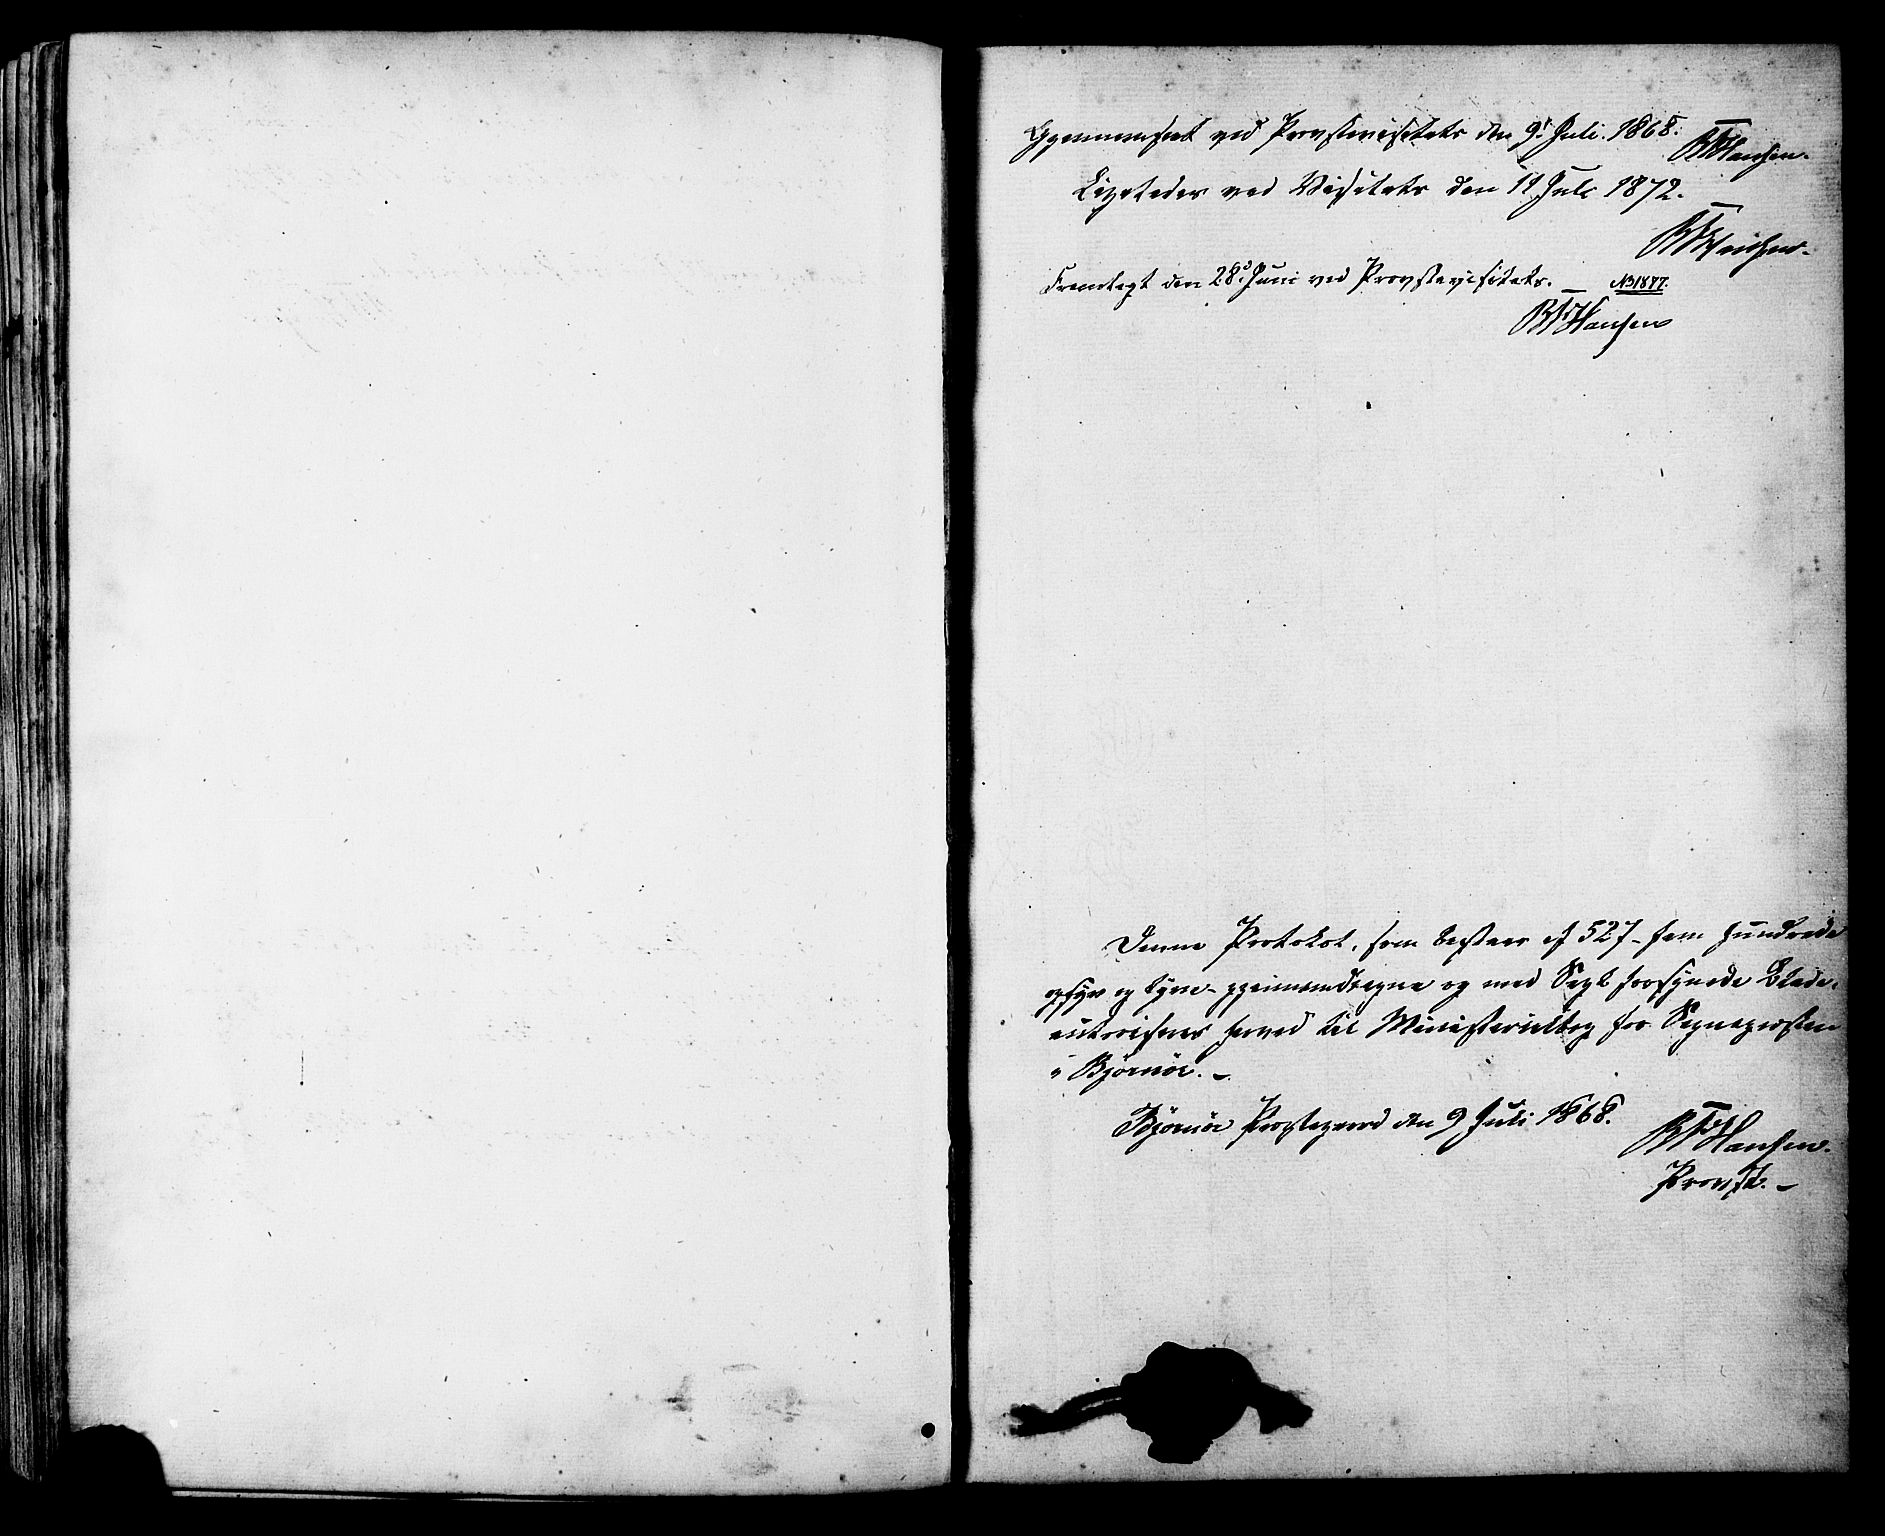 Gjennemseet ved Provstevisitats den 9d Juli. 1868.
Hansen.
Ligeledes ved Visitats den 11 Juli 1872.
Hansen.
Fremlagt den 28d Juni ved Provstevisitats. – 1877.
Hansen
Denne Protokol, som bestaar af 527 – fem hundrede
og syv og tyve – gjennemdragne og med Segl forsynede Blade,
autoriseres herved til Ministerialbog for Sognepresten
i Bjørnør. –
Bjørnør Prestegaard den 9 Juli 1868.
Hansen.
Provst. –